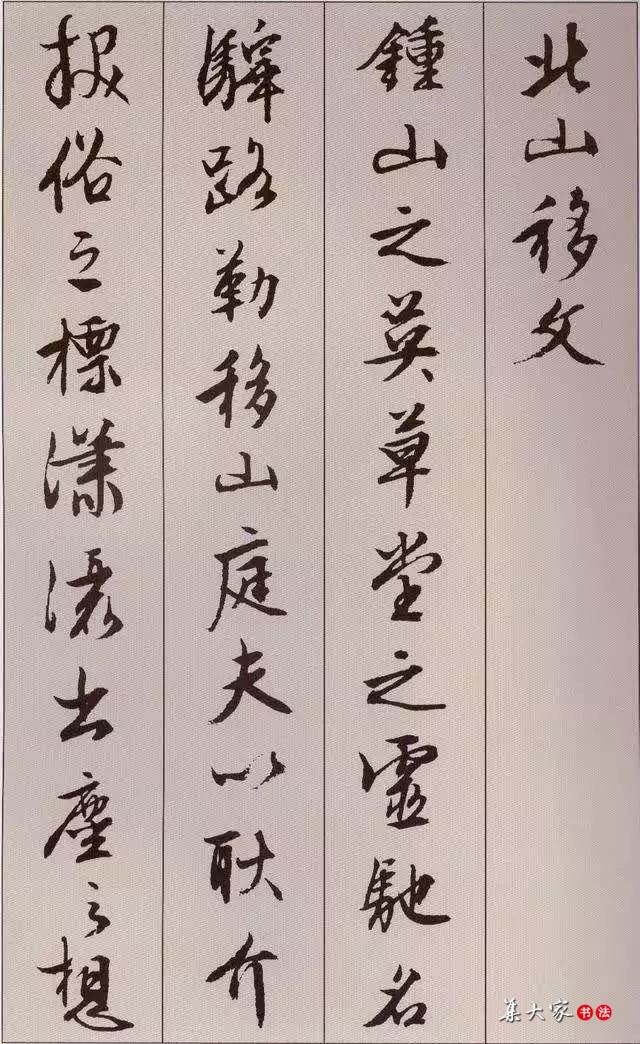 北山移文
鍾山之英草堂之靈馳名
驛路勒移山庭夫以耿介
拔俗之標瀟灑出塵之想
集大家 书法